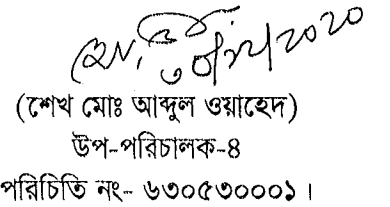 ৩০/১২/২০২০
(শেখ মোঃ আব্দুল ওয়াহেদ)
উপ-পরিচালক-৪
পরিচিতি নং- ৬৩০৫৩০০০১।